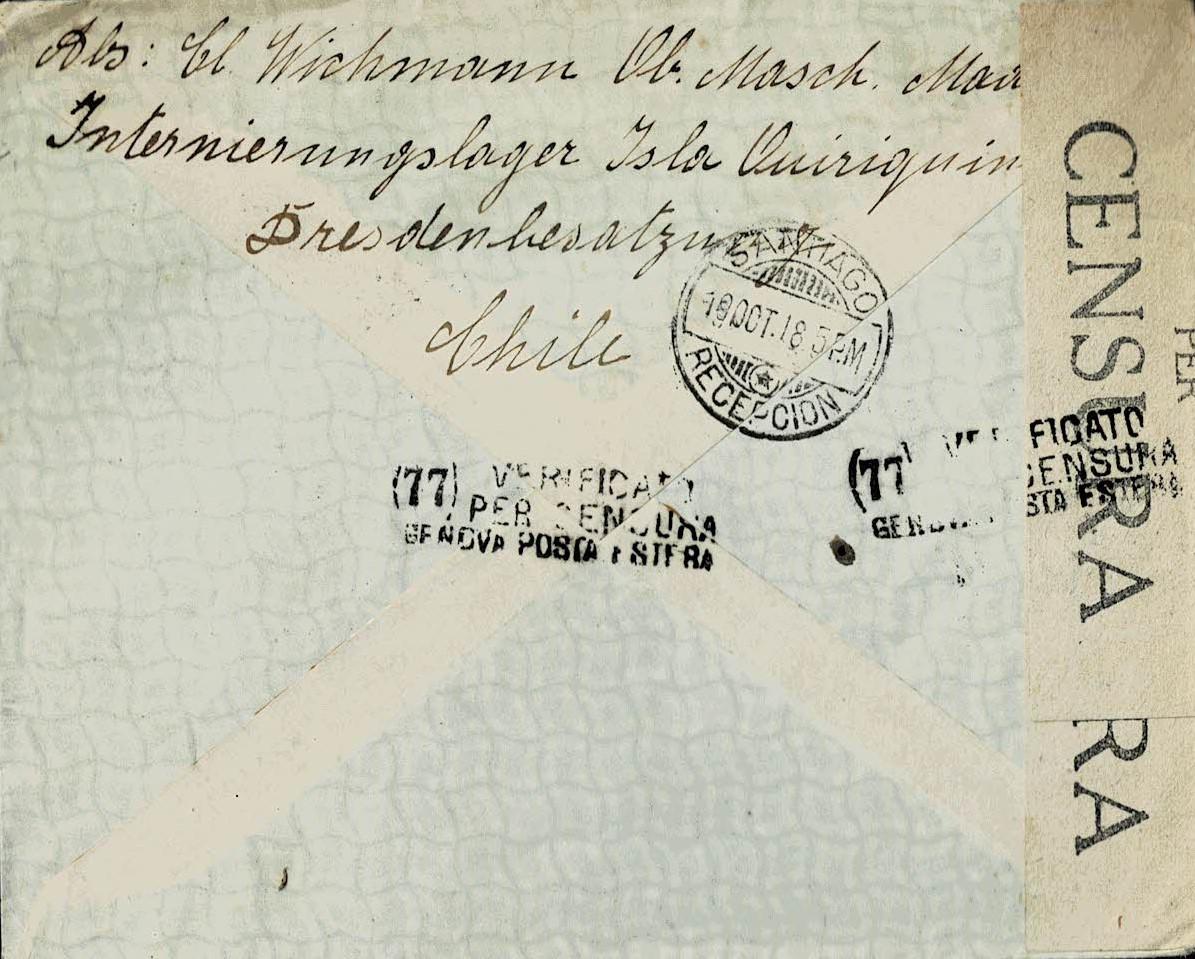 Abs: Cl. Wichmann Ob. Masch. Maa
Internierungslager Isla Quiriquin
Dresdenbesatzung
Chile
SANTIAGO
19 OCT. 18 5 PM
RECEPCION
(77) VERIFICATO
PER CENSURA
GENOVA POSTA ESTERA
(77) VERIFICATO
CENSURA
GENOVA POSTA ESTERA
CENSURA
PER
RA